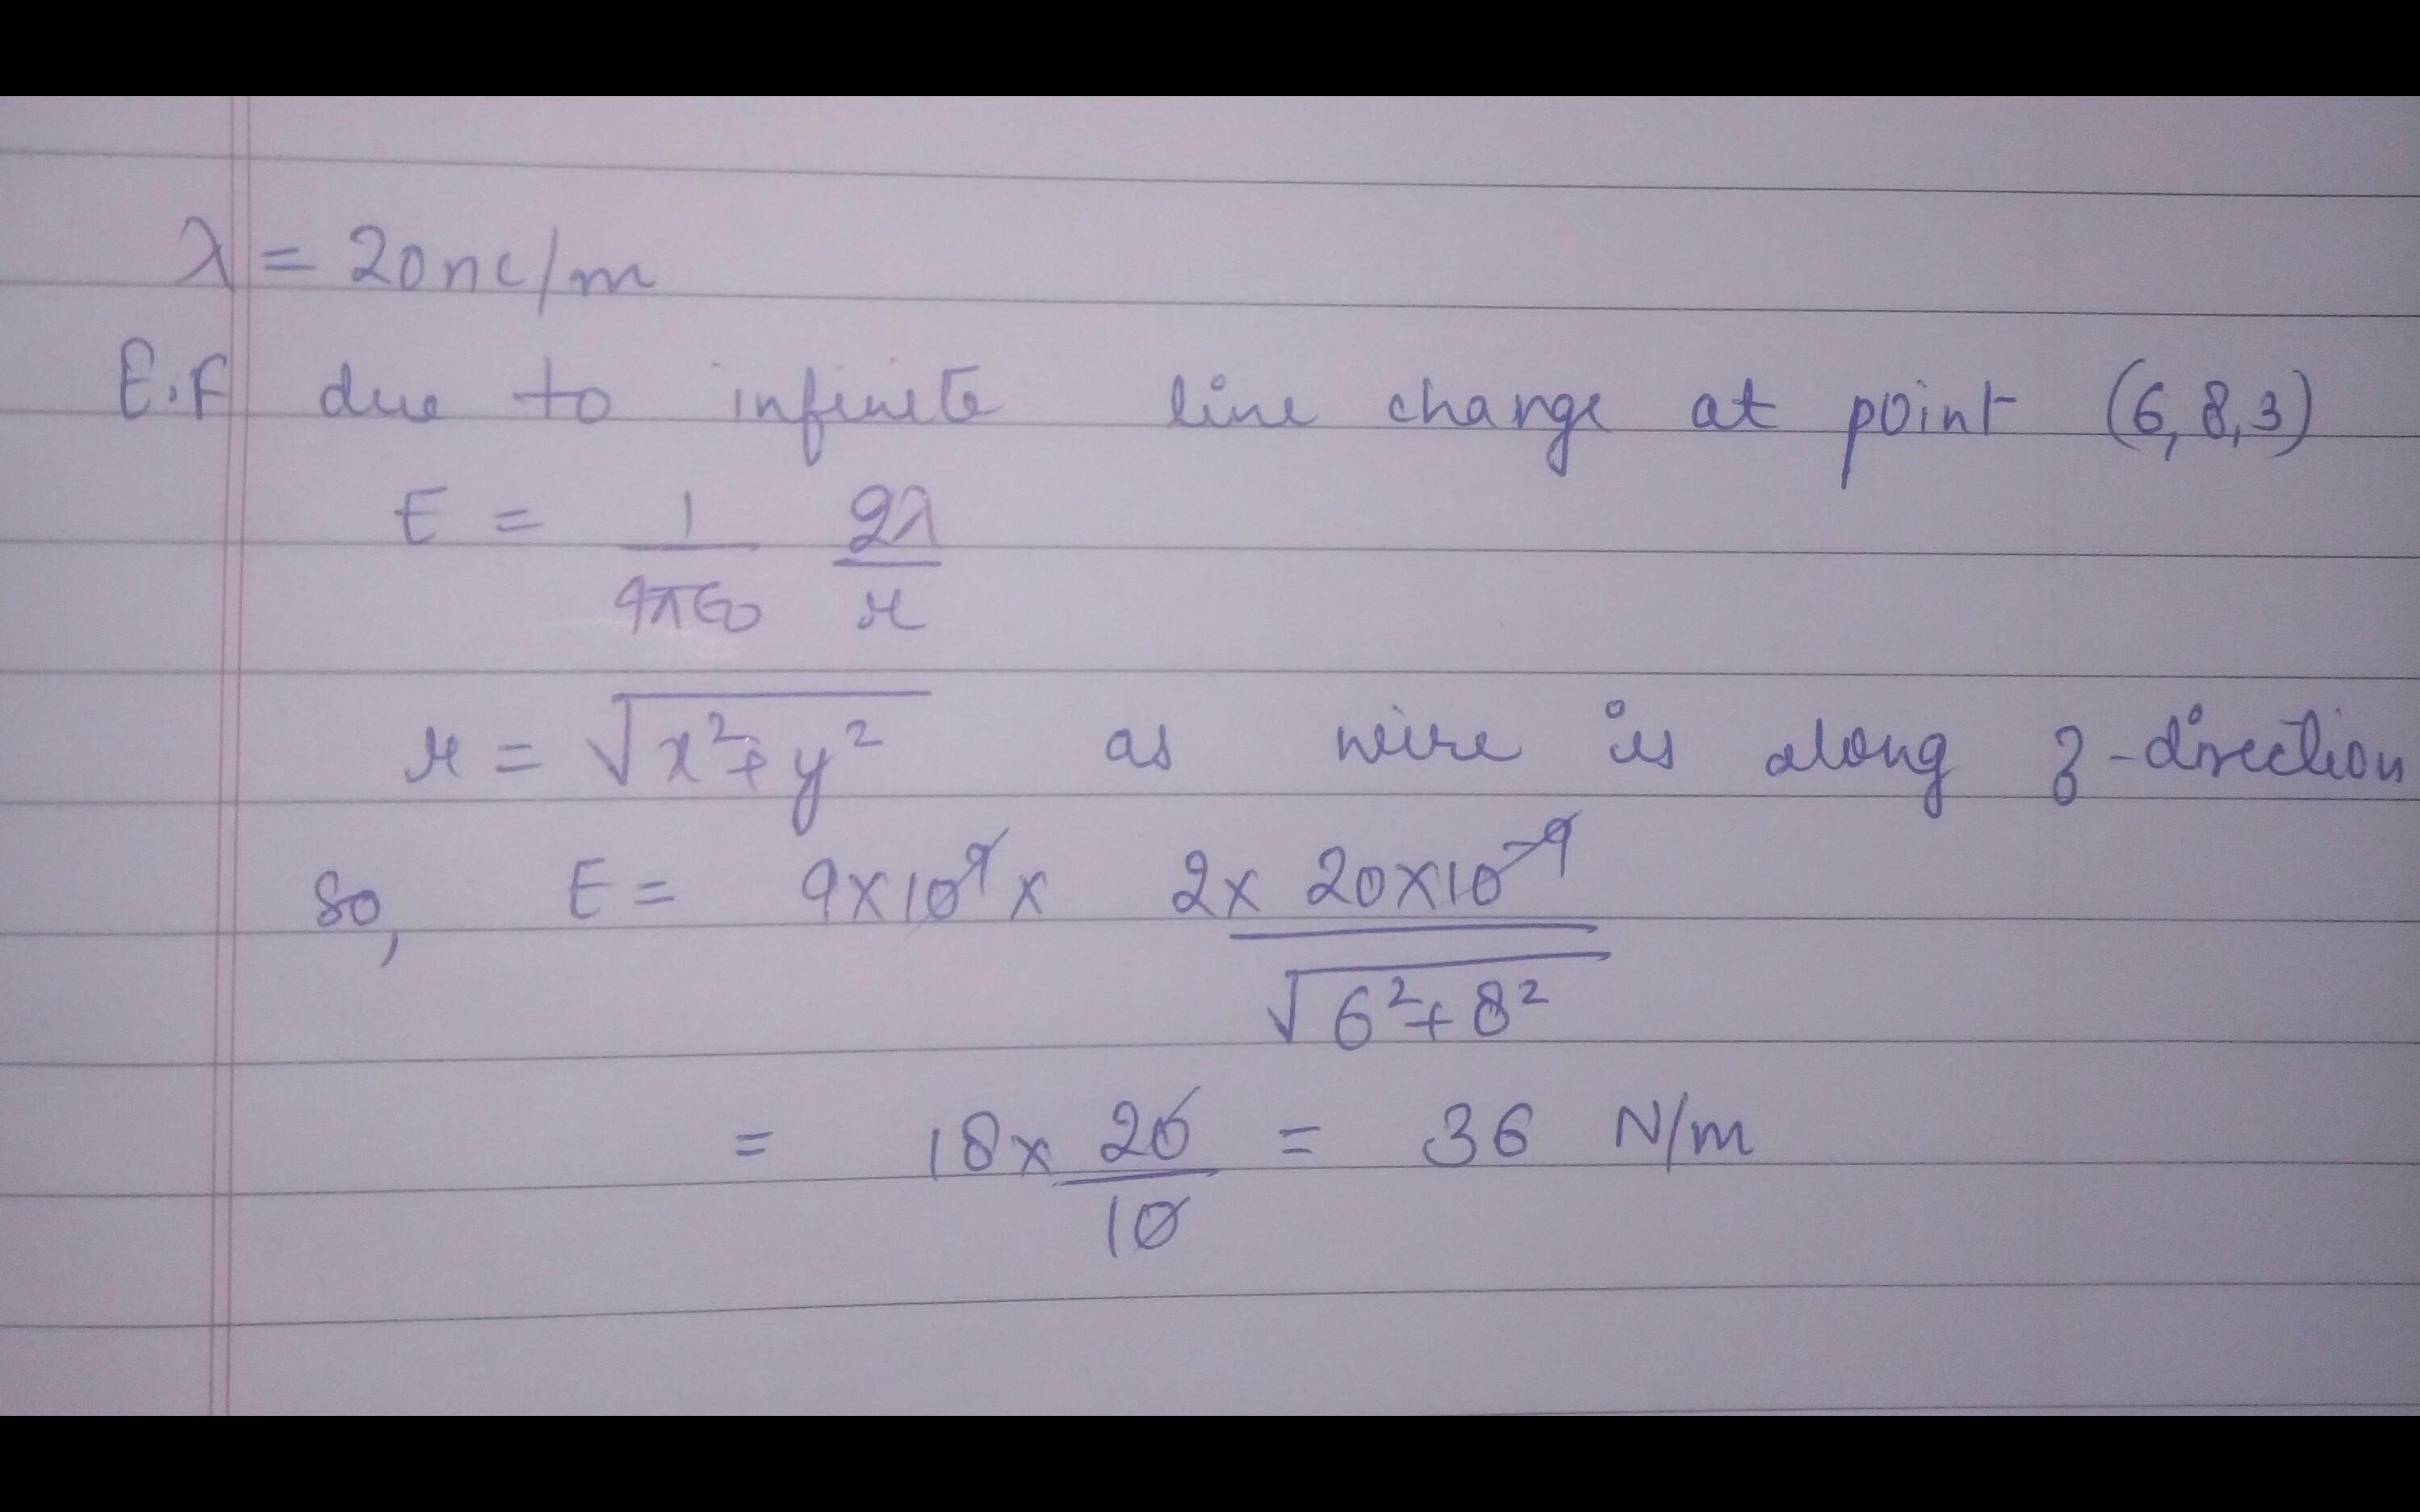 λ = 20nc/m
E.F due to infinite line charge at point (6, 8, 3)
E = 1/4πϵ0 2λ/r
r = √x²+y² as wire is along z-direction
So, E = 9×10⁹ × 2× 20×10⁻⁹/√6²+8²
= 18× 20/10 = 36 N/m